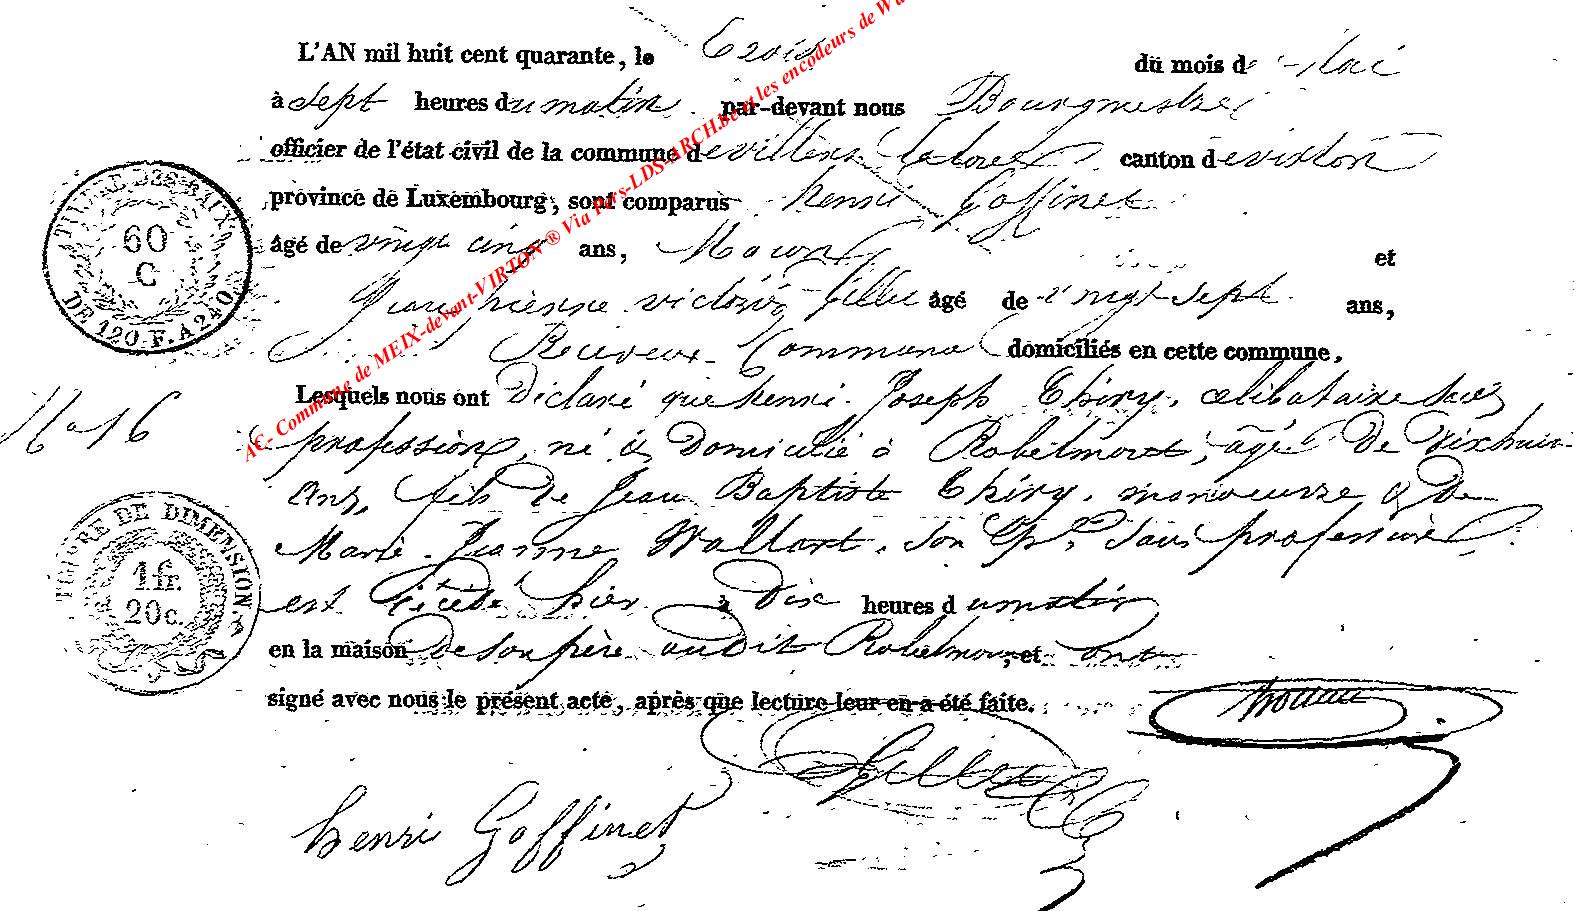 L'AN mil huit cent quarante, le trois du mois de Mai
à sept heures du matin par-devant nous Bourgmestre
officier de l'état civil de la commune de villers la loue canton de virton
province de Luxembourg, sont comparus henri Goffinet
âgé de vingt cinq ans, Maçon et
Jean pierre victoir Gillet âgé de vingt sept ans,
Receveur Communal domiciliés en cette commune.
Lesquels nous ont Déclaré que henri Joseph Thiry, célibataire sans
N° 16
profession, né & Domicilié à Robelmont, âgé De Dixhuit
ans, fils de Jean Baptiste Thiry, manoeuvre & De
Marie Jeanne Wallart, son Ep.se sans profession
est décédé hier à Dix heures du matin
en la maison De son père audit Robelmont, et ont
signé avec nous le présent acte, après que lecture leur en a été faite.
Gillet
henri Goffinet
TIMBRE DES EFFETS
60
C
DE 120 F. A 240
TIMBRE DE DIMENSION
1 fr.
20c.
AC- Commune de MEIX-devant-VIRTON ® Via Pars-LDS-ARCH.be et les encodeurs de